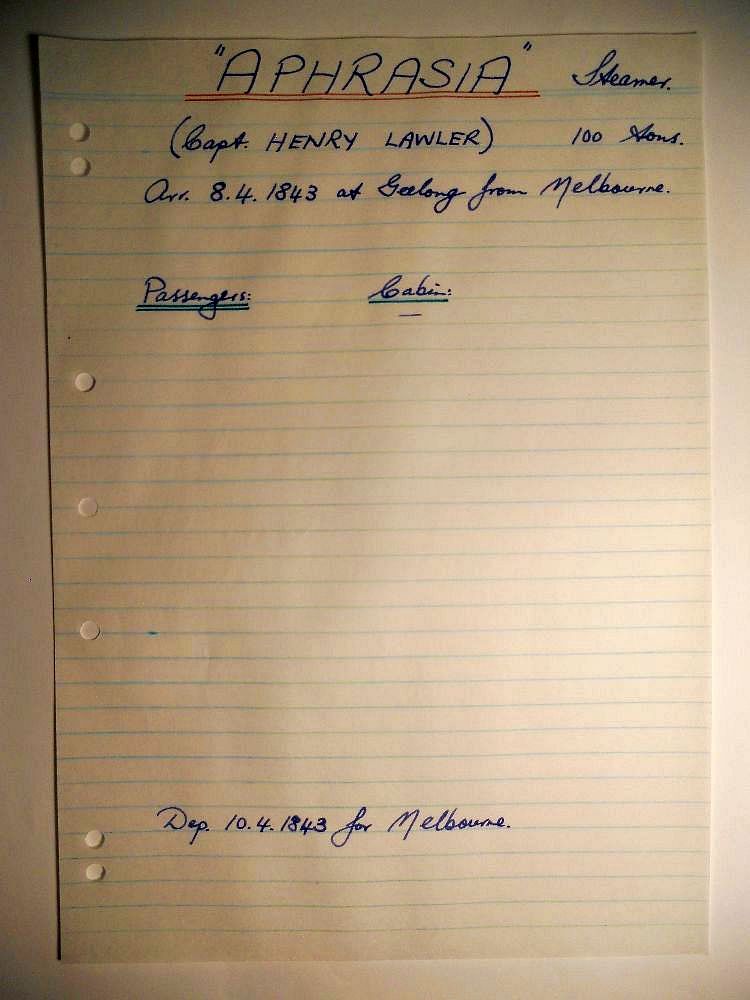 "APHRASIA" Steamer.
(Capt. HENRY LAWLER) 100 tons.
Arr. 8.4.1843 at Geelong from Melbourne.
Passengers: Cabin:
—
Dep. 10.4.1843 for Melbourne.